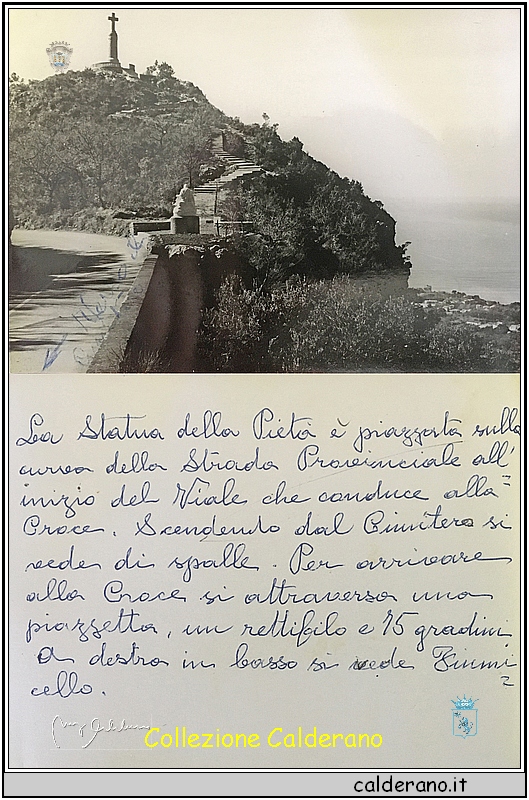 La Statua della Pietà è piazzata sulla
curva della Strada Provinciale all'
inizio del Viale che conduce alla
Croce. Scendendo dal Cimitero si
vede di spalle. Per arrivare
alla Croce si attraversa una
piazzetta, un rettifilo e 75 gradini
A destra in basso si vede Fiumi=
cello.
Collezione Calderano
calderano.it